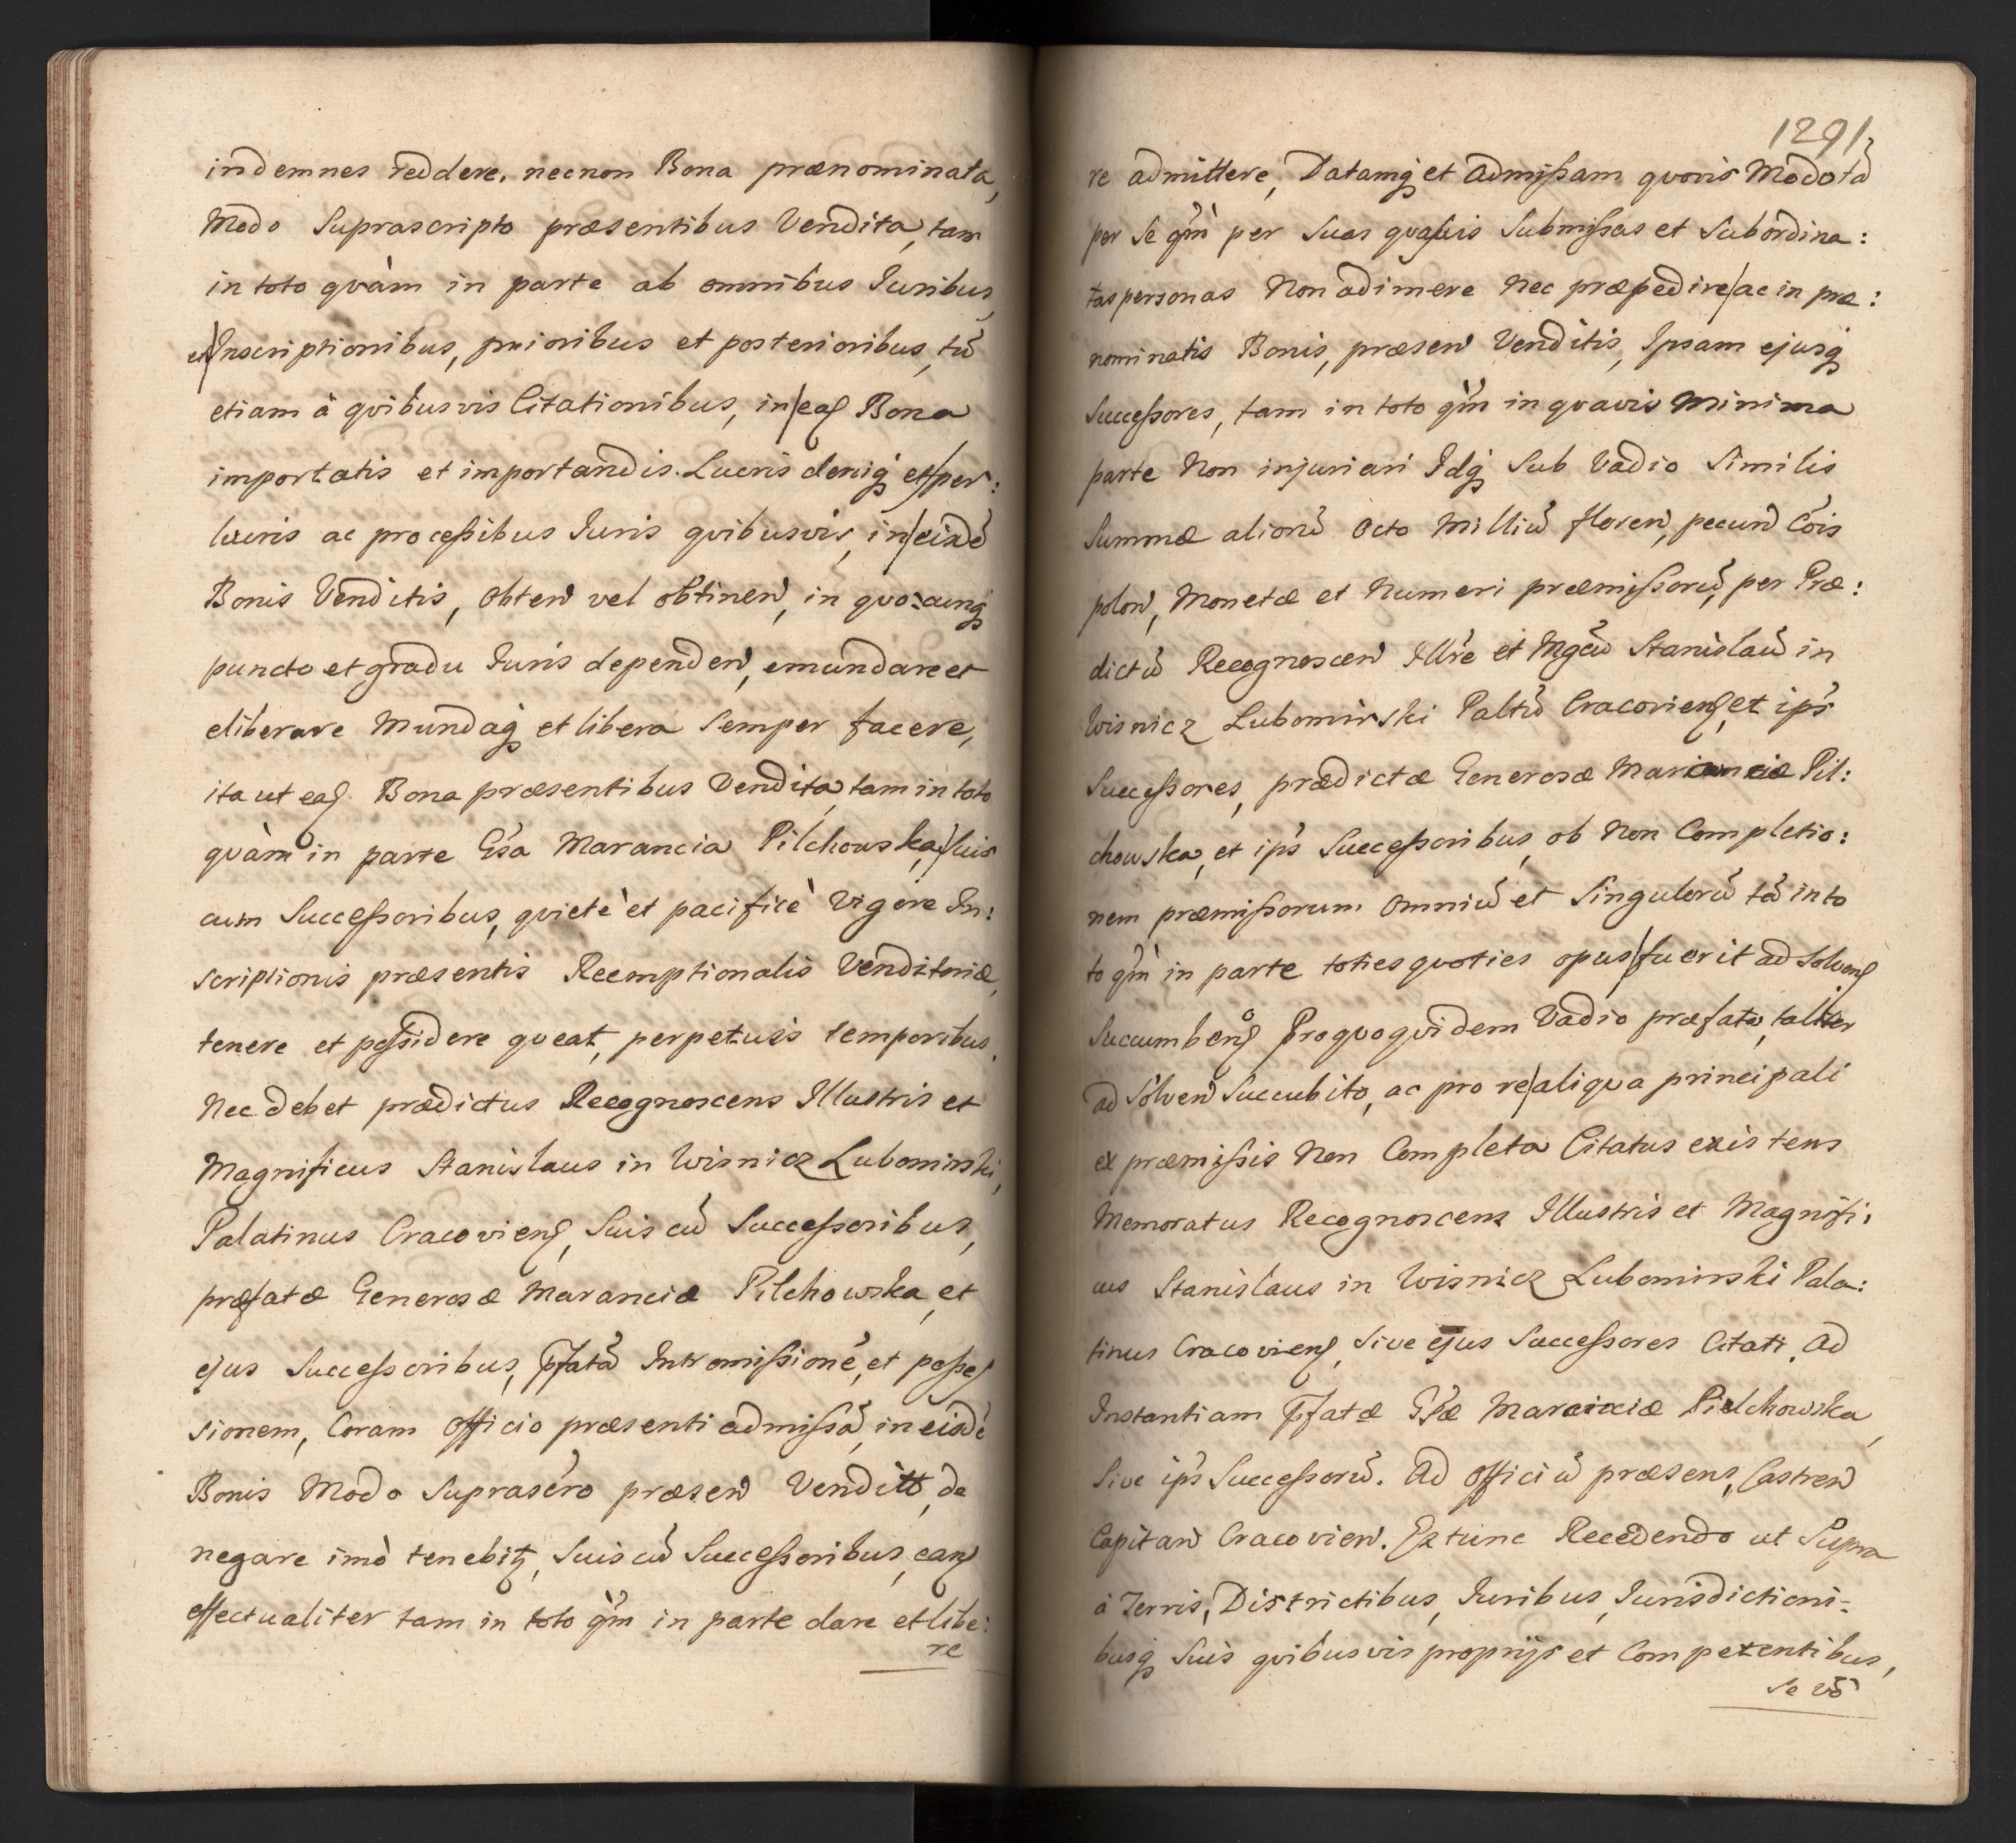 indemnes reddere, necnon Bona prænominata,
Modo Suprascripto præsentibus Vendita, tam
in toto qvàm in parte ab omnibus Iuribus,
et Inscriptionibus, prioribus et posterioribus, tū
etiam à qvibusvis Citationibus, in eaꝭ Bona
importatis et importandis. Lucris deniq̄ et per:
lucris ac processibus Iuris qvibusvis, in eisdē
Bonis Venditis, Obten̄ vel obtinen̄, in qvocunq̄
puncto et gradu Iuris dependen̄, emundare et
eliberare Mundaq̄ et libera Semper facere,
ita ut eaꝭ Bona præsentibus Vendita, tam in toto
qvàm in parte Gsa Marancia Pilchowska, suis
cum Successoribus, qvietè et pacificè Vigore In:
scriptionis præsentis Reemptionalis Venditoriæ,
tenere et possidere qveat, perpetuis temporibus.
Nec debet prædictus Recognoscens Illustris et
Magnificus Stanislaus in Wisnicz Lubomirski,
Palatinus Cracovienꝭ, Suis cū Successoribus,
præfatæ Generosæ Maranciæ Pilchowska, et
ejus Successoribus, pfatā Intromissionē, et posseſ
sionem, Coram Officio præsenti admissā, in eisdē
Bonis Modo Suprascro præsen̄ Venditt, de
negare imò tenebiꝶ, Suis cū Successoribus, eanꝭ
effectualiter tam in toto qm̀ in parte dare et libe:
re
1291
re admittere, Datamq̄ et Admissam qvovis Modo tā
per Se qm̀ per Suas qvasvis Submissas et Subordina:
tas personas Non adimere Nec præpedire ac in præ:
nominatis Bonis, præsen̄ Venditis, Ipsam ejusq̄
Successores, tam in toto qm̀ in qvavis Minima
parte Non injuriari Idq̄ Sub Vadio Similis
Summæ aliorū Octo Milliū floren̄, pecun̄ Cōis
polon̄, Monetæ et Numeri præmissorū, per Præ:
dictū Recognoscen̄ Illre et Mgcū Stanislaū in
Wisnicz Lubomirski Paltū Cracovienꝭ, et ips
Successores, prædictæ Generosæ Maranciæ Pil:
chowska, et ips Successoribus, ob Non Completio:
nem præmissorum Omniū et Singulorū tā in to
to qm̀ in parte toties qvoties opus fuerit ad Solvenꝭ
Succumbenꝭ Pro qvo qvidem Vadio præfato, taliter
ad Solven̄ Succubito, ac pro re aliqua principali
ex præmissis Non Completa Citatus existens
Memoratus Recognoscens Illustris et Magnifi:
cus Stanislaus in Wisnicz Lubomirski Pala:
tinus Cracovienꝭ, Sive ejus Successores Citati, Ad
Instantiam pfatæ Gsæ Maranciæ Pilchowska,
Sive ips Successorū. Ad Officiū præsens, Castren̄
Capitan̄ Cracovien̄. Ex tunc Recedendo ut Supra
à Terris, Districtibus, Iuribus, Iurisdictioni-
busq̄ Suis qvibusvis proprijs et Competentibus,
Se vō